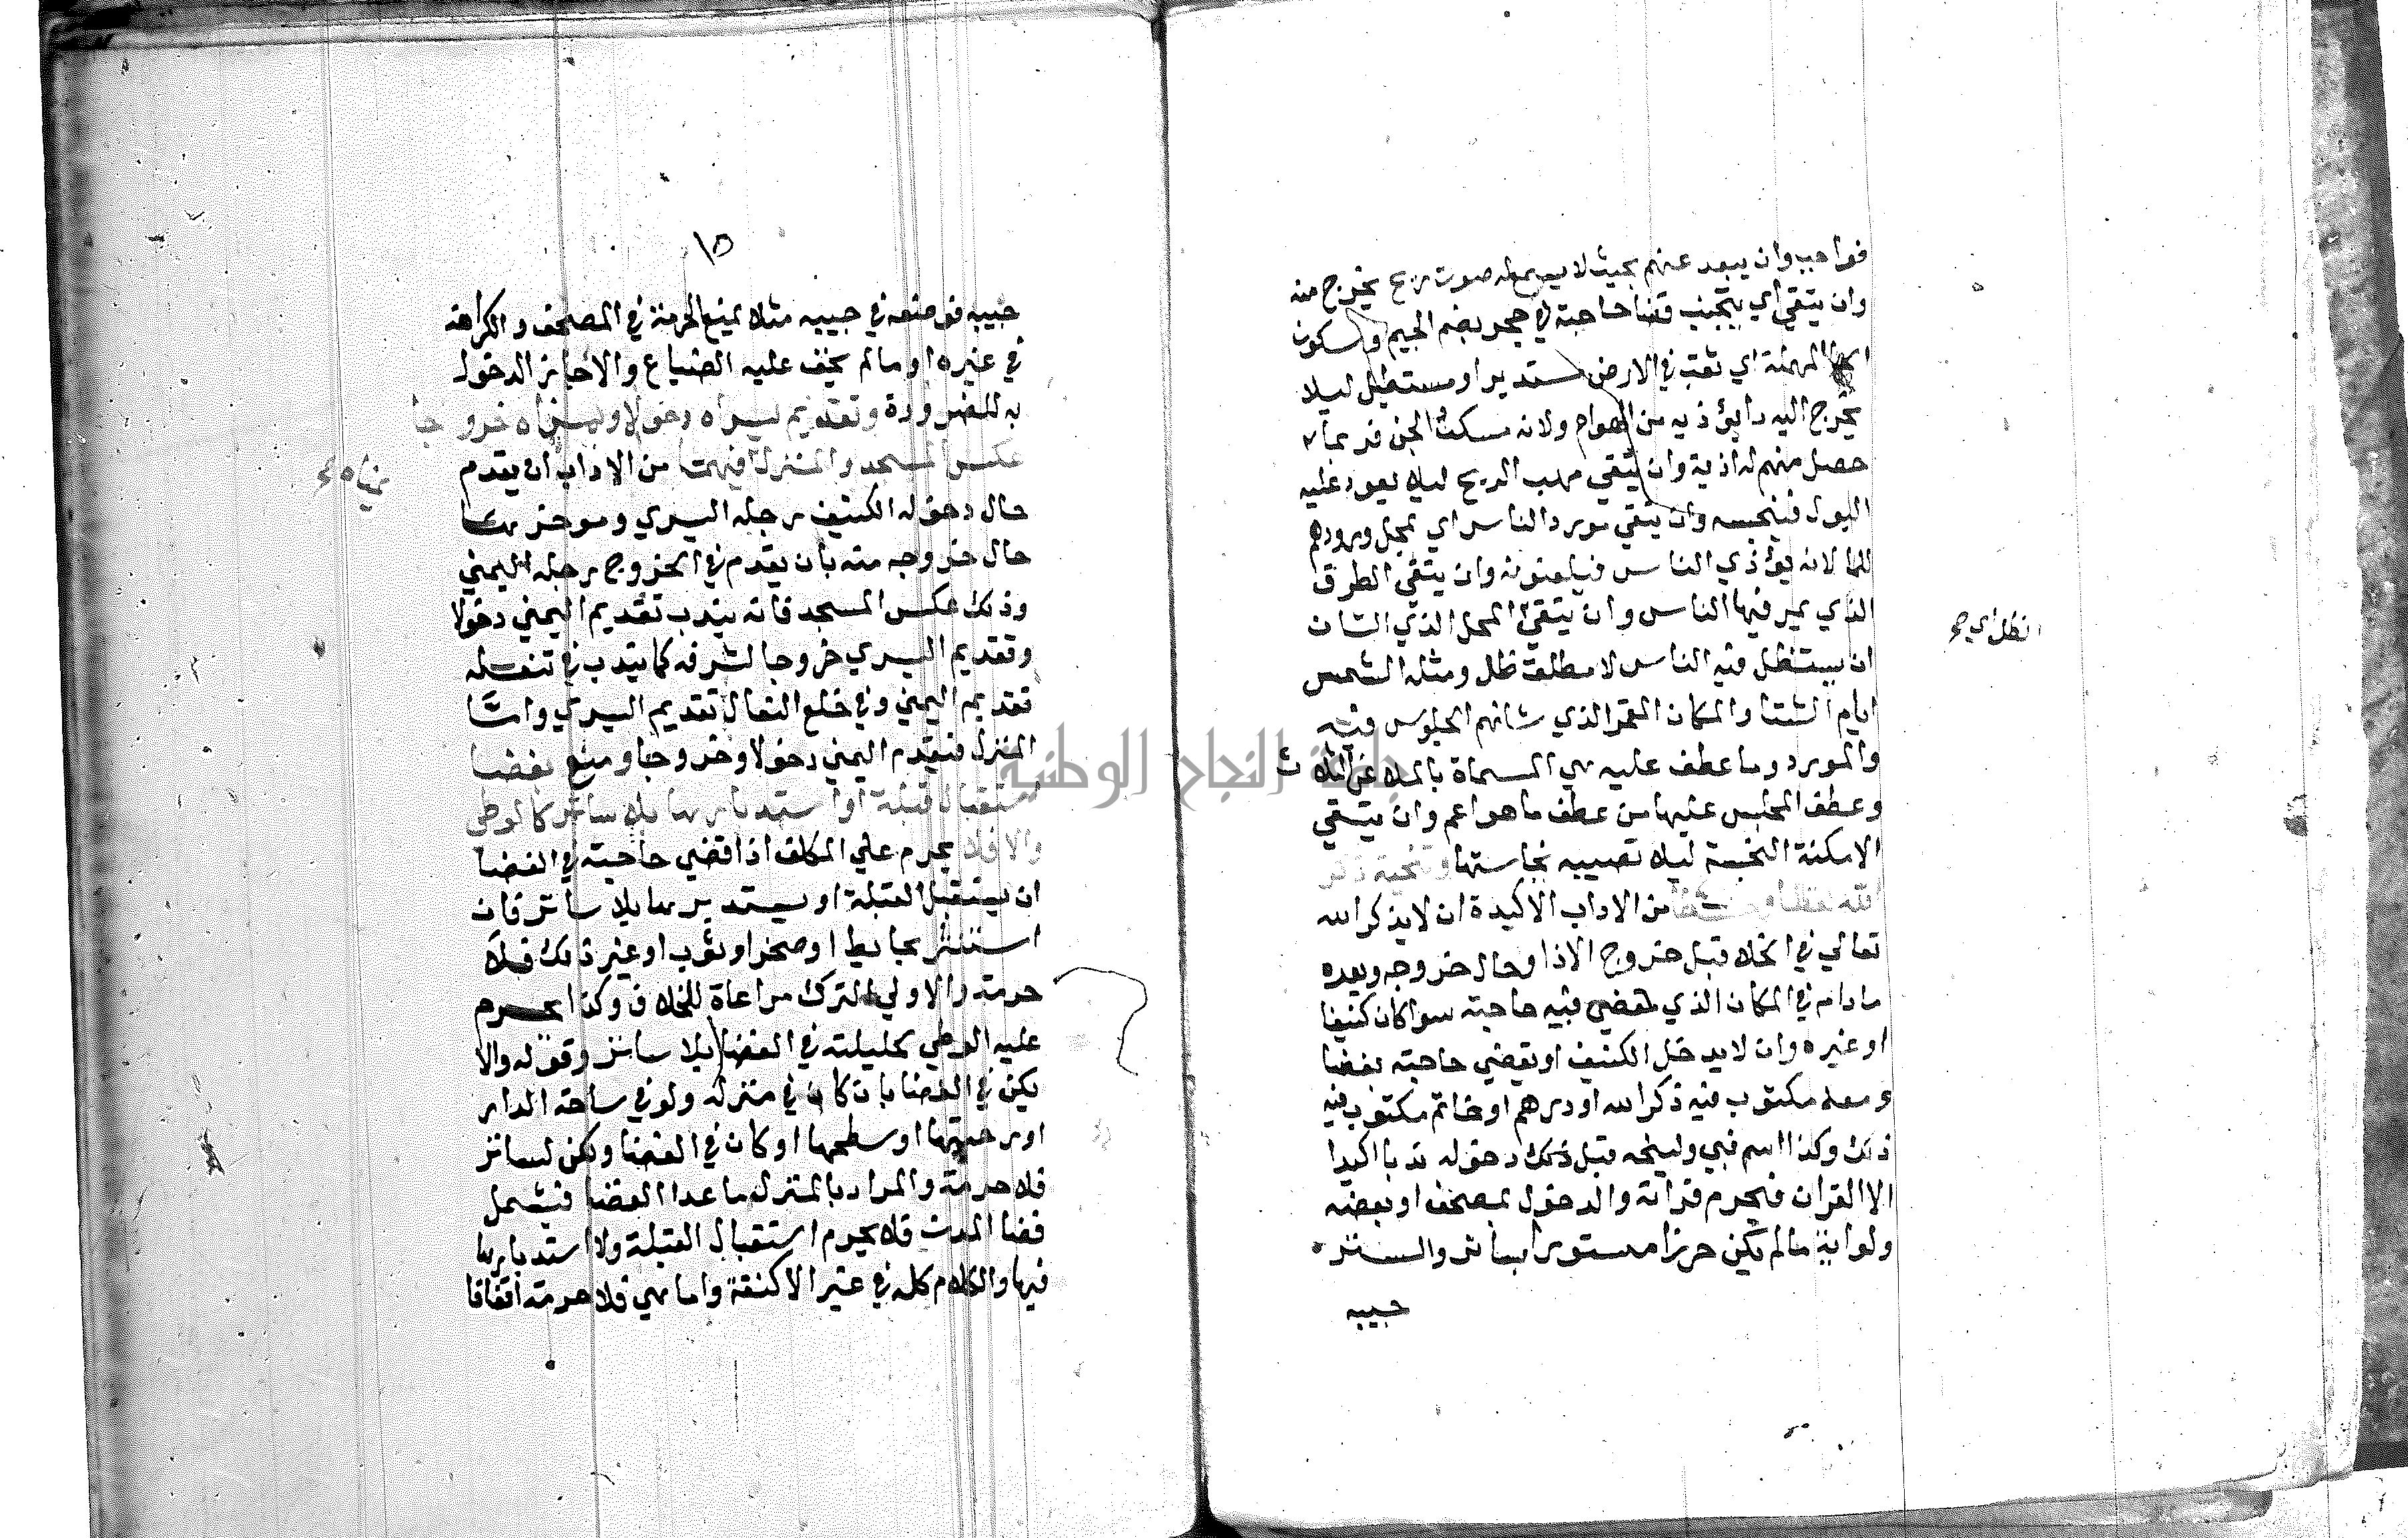 فواجب وان يبعد عنهم بحيث لا يسمع له صوت ريح يخرج منه
وان يتقي اي يتجنب قضا حاجته في جحر بضم الجيم وسكون
الحا المهملة اي ثقب في الارض مستدير او مستطيل ليلا
يخرج اليه ما يؤذيه من الهوام ولانه مسكن الجن فربما
حصل منهم له اذية وان يتقي مهب الريح ليلا يعود عليه
البول فينجسه وان يتقي مورد الناس اي محل ورودهم
للما لانه يؤذي الناس فيلعنونه وان يتقي الطرق
الذي يمر فيها الناس وان يتقي المحل الذي الشان
الظل اي صح
ان يستظل فيه الناس لا مطلق ظل ومثله الشمس
ايام الشتا والمكان القمر الذي شانهم الجلوس فيه
والمورد وما عطف عليه هي المسماة بالملاعن الثلاث
وعطف المجلس عليها من عطف ما هو اعم وان يتقي
الامكنة النجسة ليلا تصيبه نجاستها وتنحية ذكر
الله لفظا و من الاداب الاكيدة ان لا يذكر الله
تعالي في الخلا قبل خروج الاذا وحال خروجه وبعده
ما دام في المكان الذي قضي فيه حاجته سوا كان كنيفا
او غيره وان لا يدخل الكنيف او يقضي حاجته بفضا
ومعه مكتوب فيه ذكر الله او درهم او خاتم مكتوب فيه
ذلك وكذا اسم نبي ولينحه قبل ذلك دخوله ندبا اكيدا
الا القران فيحرم قراته والدخول بمصحف او بعضه
ولو اية ما لم يكن حرزا مستورا بساتر والستر
جيبه
١٥
جيبه فوضعه في جيبه مثلا يمنع الحرمة في المصحف والكراهة
في غيره او ما لم يخف عليه الضياع والا جاز الدخول
به للضرورة وتقديم يسراه دخولا ويمناه خروجا
يمناه صح
عكس المسجد والمنزل فيهما من الاداب ان يقدم
حال دخوله الكنيف رجله اليسري وموخرها
حال خروجه منه بان يقدم في الخروج رجله اليمني
وذلك عكس المسجد فانه يندب تقديم اليمني دخولا
وتقديم اليسري خروجا لشرفه كما يندب في تنعله
تقديم اليمني وفي خلع النعال تقديم اليسري واما
المنزل فيقدم اليمني دخولا وخروجا ومنع بفضا
استقبال قبلة او استدبارها بلا ساتر كالوطي
والا فلا يحرم علي المكلف اذا قضي حاجته في الفضا
ان يستقبل القبلة او يستدبرها بلا ساتر فان
استتر بحايط او صخر او ثوب او غير ذلك فلا
حرمة والاولي الترك مراعاة للخلاف وكذا يحرم
عليه الوطي بحليلته في الفضا بلا ساتر وقوله والا
يكن في الفضا بان كان في منزله ولو في ساحة الدار
او رحبتها او سطحها او كان في الفضا ولكن لساتر
فلا حرمة والمراد بالمنزل ما عدا الفضا فيشمل
فضا المدن فلا يحرم استقبال القبلة ولا استدبارها
فيها والكلام كله في غير الاكنفة واما هي فلا حرمة اتفاقا
جامعة النجاح الوطنية